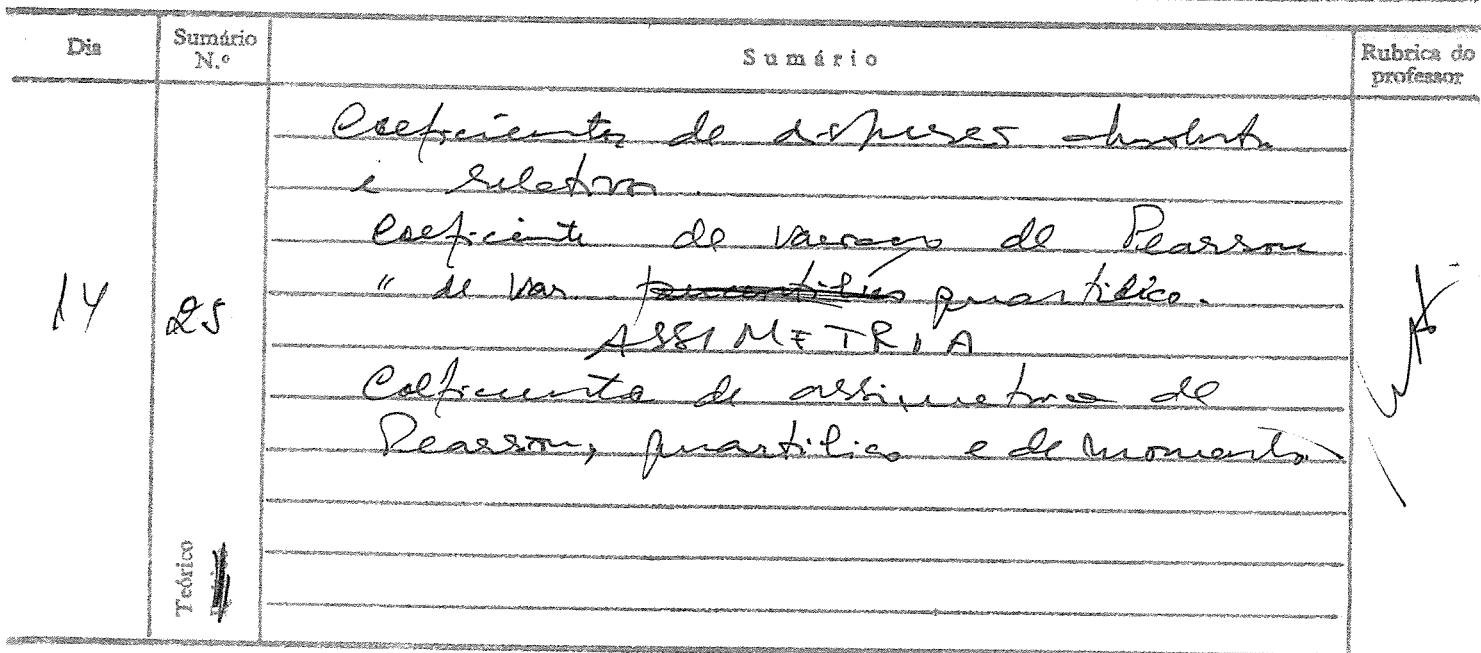 Dia
Sumário N.º
Sumário
Rubrica do professor
14
25
Coeficientes de dispersão absoluta
e relativa.
Coeficiente de variação de Pearson
" de var. quartílico.
ASSIMETRIA
Coeficiente de assimetria de
Pearson, quartílico e de momento
Teórico